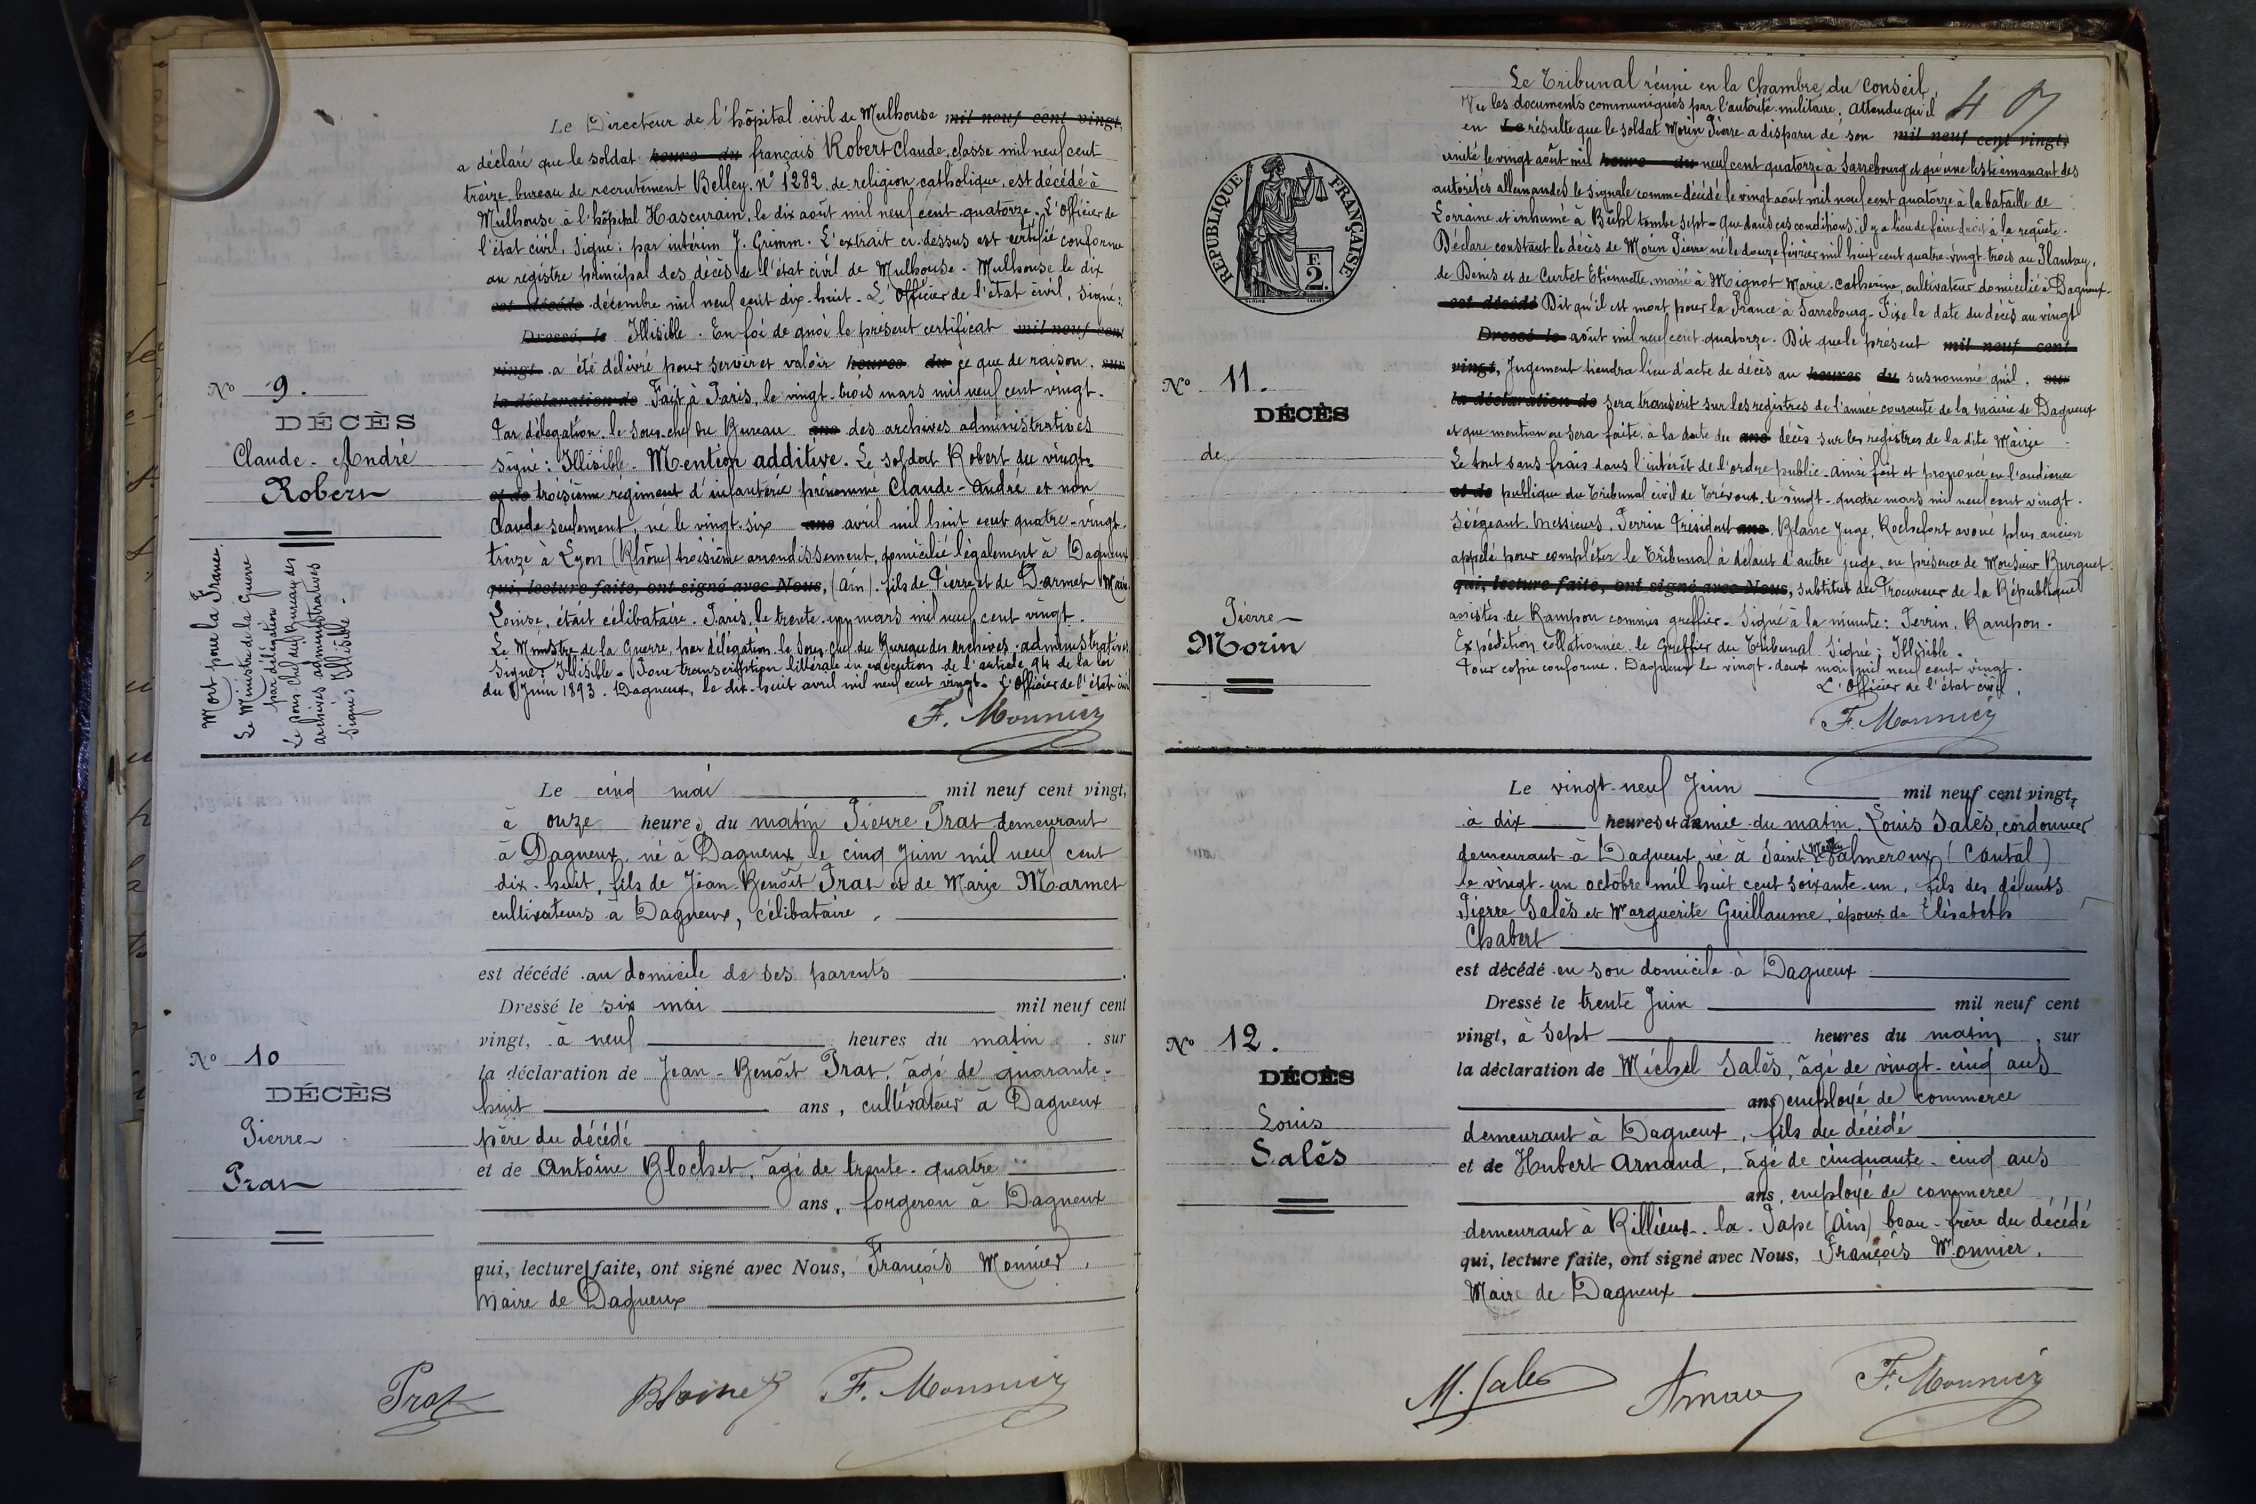 Le Directeur de l'hôpital civil de Mulhouse mil neuf cent vingt,
a déclaré que le soldat heure du français Robert Claude, classe mil neuf cent
treize, bureau de recrutement Belley, n° 1282, de religion catholique, est décédé à
Mulhouse à l'hôpital Hasenrain, le dix août mil neuf cent quatorze. L'Officier de
l'état civil, signé: par intérim J. Grimm. L'extrait ci-dessus est certifié conforme
au registre principal des décès de l'état civil de Mulhouse. Mulhouse le dix
est décédé décembre mil neuf cent dix-huit - L'Officier de l'état civil, signé:
Dressé le Illisible. En foi de quoi le présent certificat mil neuf cent
vingt a été délivré pour servir et valoir heures du ce que de raison. sur
la déclaration de Fait à Paris, le vingt-trois mars mil neuf cent vingt.
Par délégation, le sous-chef du Bureau ans des archives administratives
signé: Illisible. Mention additive. Le soldat Robert du vingt-
et de troisième régiment d'infanterie prénommé Claude-André et non
Claude seulement, né le vingt-six ans avril mil huit cent quatre-vingt-
treize à Lyon (Rhône) troisième arrondissement, domicilié légalement à Dagneux
qui, lecture faite, ont signé avec Nous, (Ain). fils de Pierre et de Darmet Marie
Louise, était célibataire. Paris, le trente-un mars mil neuf cent vingt.
Le Ministre de la Guerre, par délégation, le Sous-Chef du Bureau des Archives administratives
signé: Illisible. Pour transcription littérale en exécution de l'article 94 de la loi
du 8 Juin 1893. Dagneux, le dix-huit avril mil neuf cent vingt. L'Officier de l'état civil
F. Monnier
N° 9.
DÉCÈS
Claude-André
Robert
Mort pour la France.
Le Ministre de la Guerre
par délégation
Le Sous-Chef du Bureau des
archives administratives
signé: Illisible.
Le cinq mai mil neuf cent vingt,
à onze heures du matin Pierre Prat demeurant
à Dagneux, né à Dagneux, le cinq Juin mil neuf cent
dix-huit, fils de Jean-Benoît Prat et de Marie Marmet
cultivateurs à Dagneux, célibataire,
est décédé au domicile de ses parents
Dressé le six mai mil neuf cent
vingt, à neuf heures du matin, sur
la déclaration de Jean-Benoît Prat, âgé de quarante-
huit ans, cultivateur à Dagneux
père du décédé
et de Antoine Blochet, âgé de trente-quatre
ans, forgeron à Dagneux
qui, lecture faite, ont signé avec Nous, François Monnier,
Maire de Dagneux
N° 10
DÉCÈS
Pierre
Prat
Prat Blochet F. Monnier
Le Tribunal réuni en la Chambre du Conseil,
Vu les documents communiqués par l'autorité militaire; Attendu qu'il
en Le résulte que le soldat Morin Pierre a disparu de son mil neuf cent vingt,
unité le vingt août mil heure du neuf cent quatorze à Sarrebourg et qu'une liste émanant des
autorités allemandes le signale comme décédé le vingt août mil neuf cent quatorze à la bataille de
Lorraine et inhumé à Bühl tombe sept - Que dans ces conditions, il y a lieu de faire droit à la requête.
Déclare constant le décès de Morin Pierre né le douze février mil huit cent quatre-vingt-trois au Plantay,
de Denis et de Curtet Etiennette, marié à Mignot Marie-Catherine, cultivateur domicilié à Dagneux.
est décédé Dit qu'il est mort pour la France à Sarrebourg - Fixe la date du décès au vingt
Dressé le août mil neuf cent quatorze. Dit que le présent mil neuf cent
vingt, Jugement tiendra lieu d'acte de décès au heures du susnommé qu'il, sur
la déclaration de sera transcrit sur les registres de l'année courante de la mairie de Dagneux
et que mention en sera faite à la date du ans décès sur les registres de la dite Mairie
Le tout sans frais dans l'intérêt de l'ordre public. Ainsi fait et prononcé en l'audience
et de publique du Tribunal civil de Trévoux, le vingt-quatre mars mil neuf cent vingt.
Siégeant Messieurs, Perrin Président ans, Blanc Juge, Rochefort avoué plus ancien
appelé pour compléter le Tribunal à défaut d'autre juge, en présence de Monsieur Burguet
qui, lecture faite, ont signé avec Nous, subtitut du Procureur de la République
assistés de Rampon commis greffier - Signé à la minute: Perrin, Rampon.
Expédition collationnée, le Greffier du Tribunal. Signé: Illisible.
Pour copie conforme. Dagneux le vingt-deux mai mil neuf cent vingt.
L'Officier de l'état civil,
F. Monnier
N° 11.
DÉCÈS
de
Pierre
Morin
RÉPUBLIQUE FRANÇAISE
F.
2.
Le vingt-neuf Juin mil neuf cent vingt,
à dix heures et demie du matin, Louis Salès, cordonnier
demeurant à Dagneux né à Saint Martin Valmeroux (Cantal)
le vingt-un octobre mil huit cent soixante-un, fils des défunts
Pierre Salès et Marguerite Guillaume, époux de Elisabeth
Chabert
est décédé en son domicile à Dagneux
Dressé le trente Juin mil neuf cent
vingt, à sept heures du matin, sur
la déclaration de Michel Salès, âgé de vingt-cinq ans
ans, employé de commerce
demeurant à Dagneux, fils du décédé
et de Hubert Arnaud, âgé de cinquante-cinq ans
ans, employé de commerce
demeurant à Rillieux-la-Pape (Ain) beau-frère du décédé
qui, lecture faite, ont signé avec Nous, François Monnier,
Maire de Dagneux
N° 12.
DÉCÈS
Louis
Salès
M. Sales Arnau F. Monnier